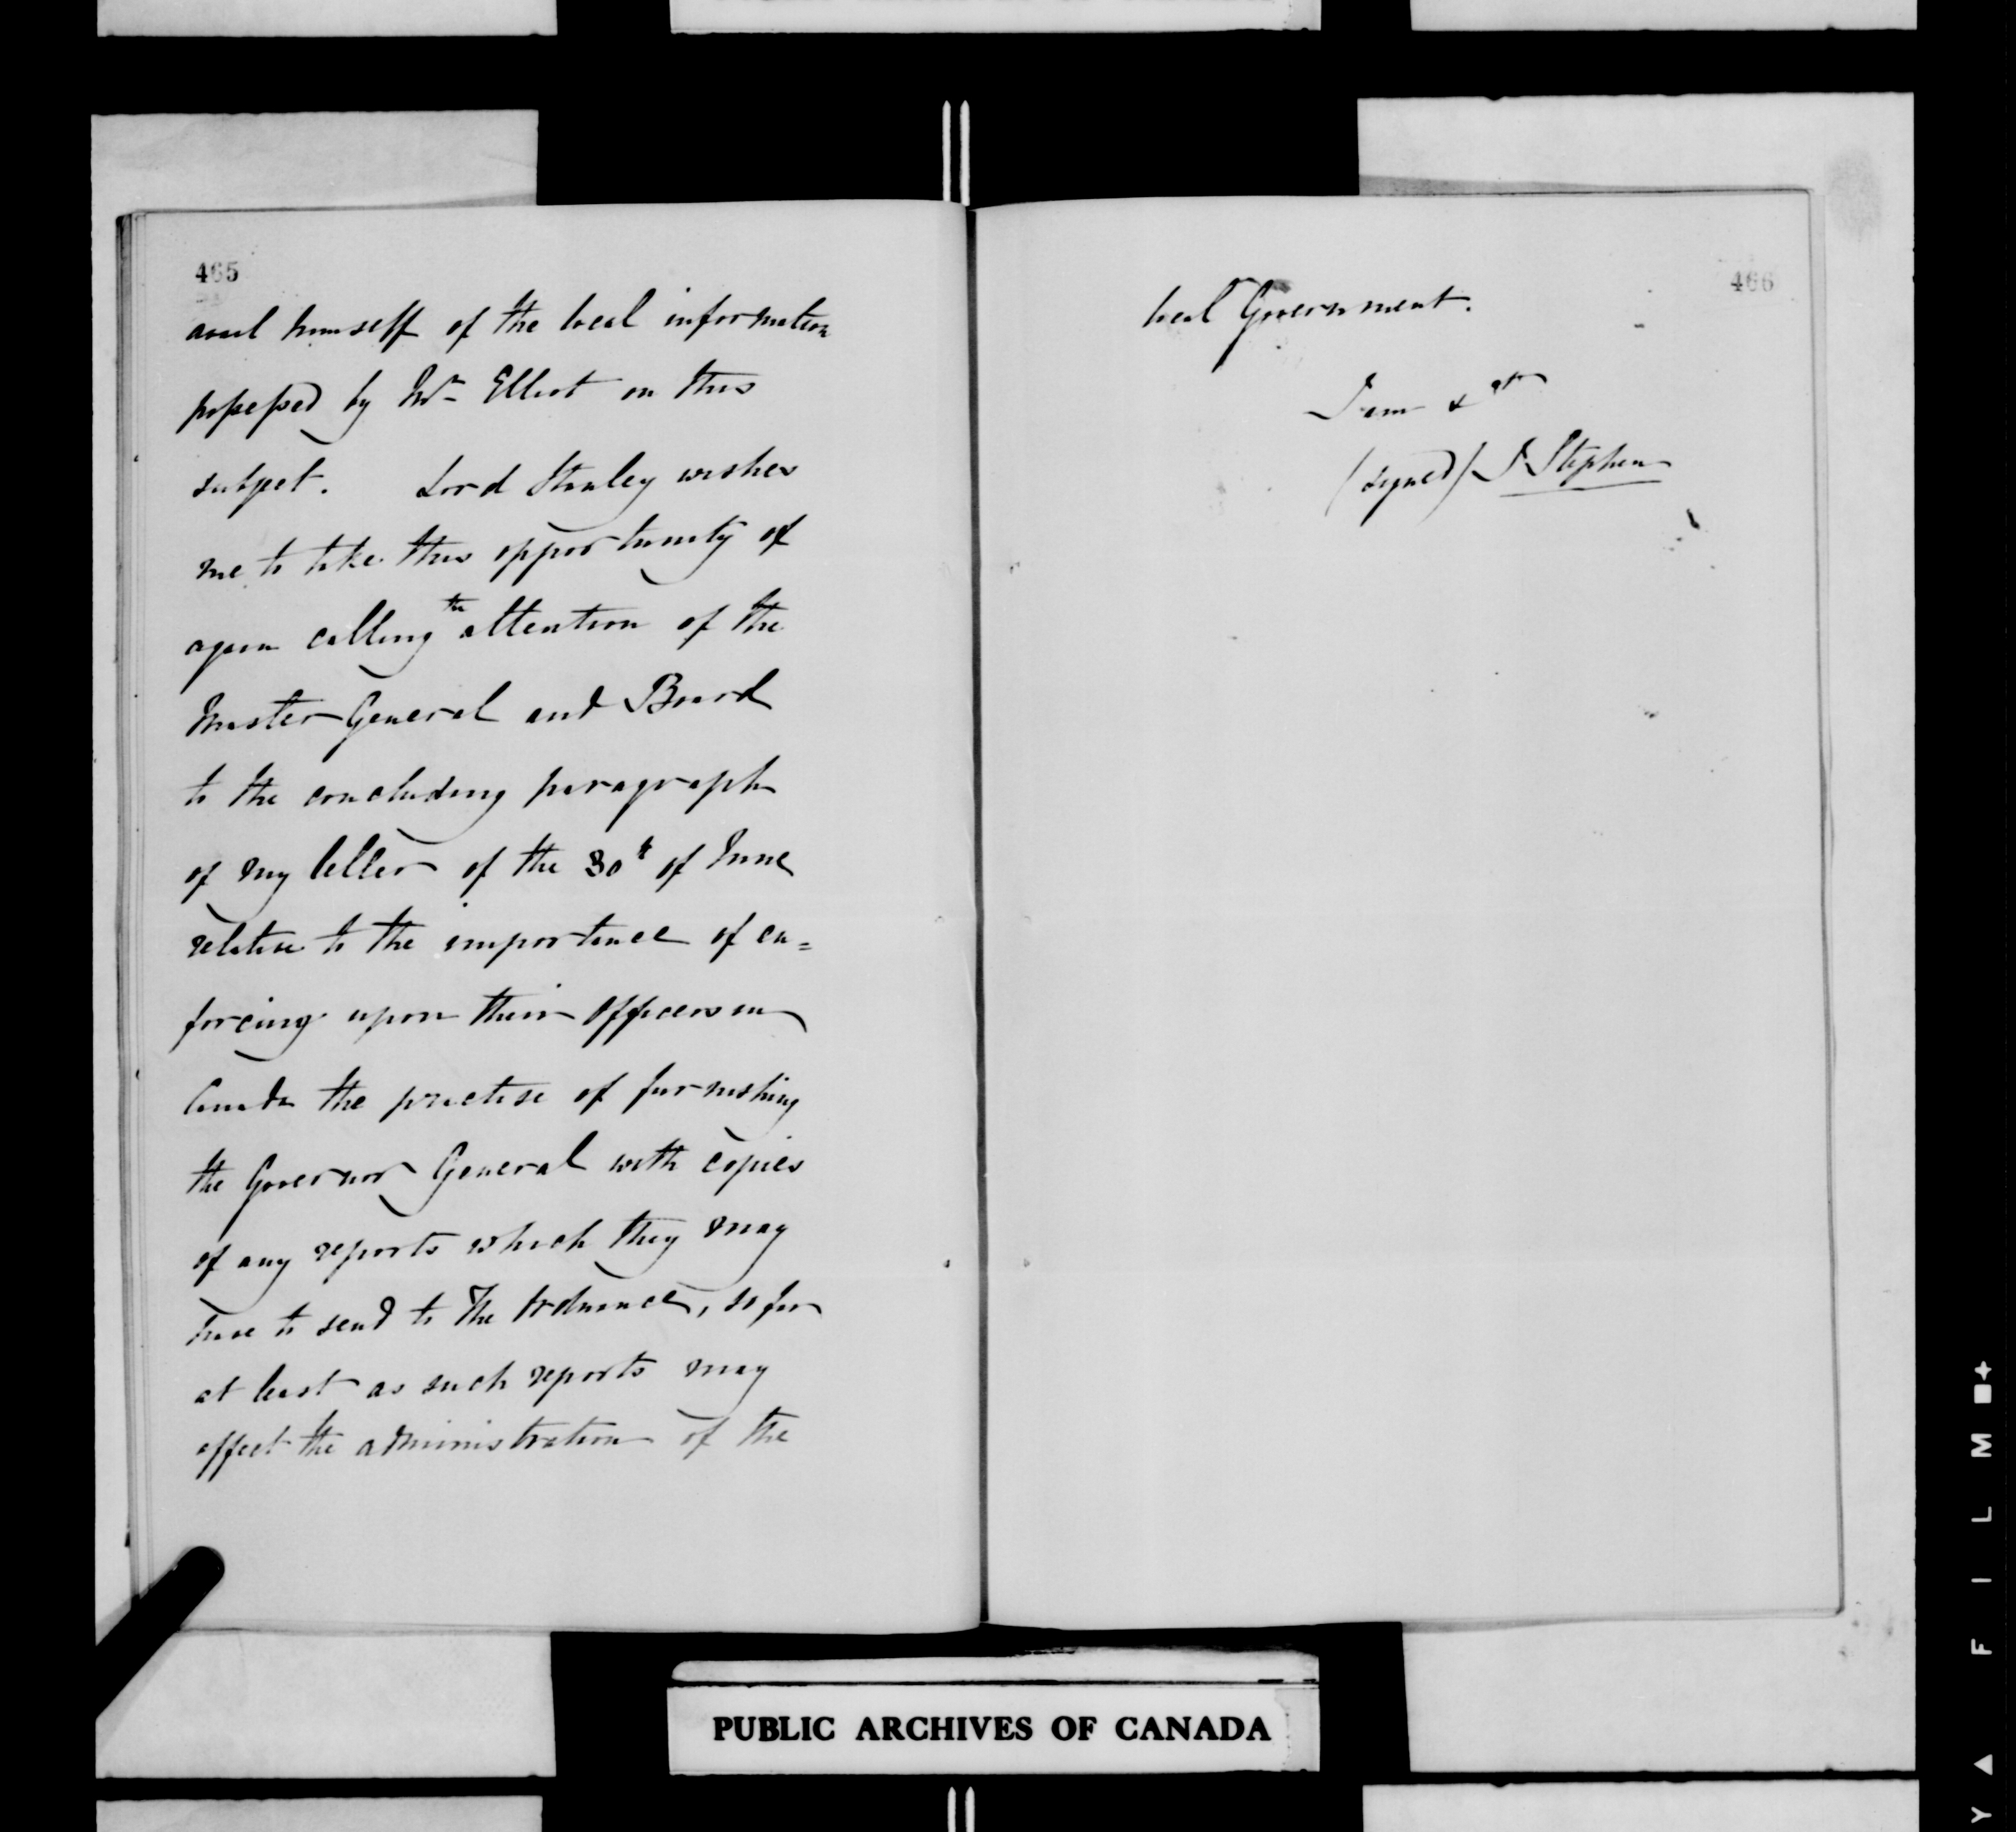 465
avail himself of the local information
possessed by Mr Elliot on this
subject. Lord Stanley wishes
me to take this opportunity of
again calling the attention of the
Master General and Board
to the concluding paragraph
of my letter of the 30th of June
relative to the importance of en=
forcing upon their Officers in
Canada the practise of furnishing
the Governor General with copies
of any reports which they may
have to send to the Ordnance, so far
at least as such reports may
affect the administration of the
466
local Government.
I am &c
(signed) J Stephen
PUBLIC ARCHIVES OF CANADA
Y F I L M